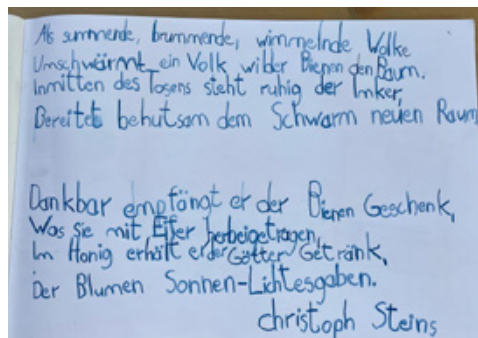 Als summende, brummende, wimmelnde Wolke
Umschwärmt ein Volk wilder Bienen den Baum.
Inmitten des Tosens steht ruhig der Imker,
Bereitet behutsam dem Schwarm neuen Raum
Dankbar empfängt er der Bienen Geschenk,
Was sie mit Eifer herbeigetragen,
Im Honig erhält er der Götter Getränk,
Der Blumen Sonnen-Lichtesgaben.
Christoph Steins